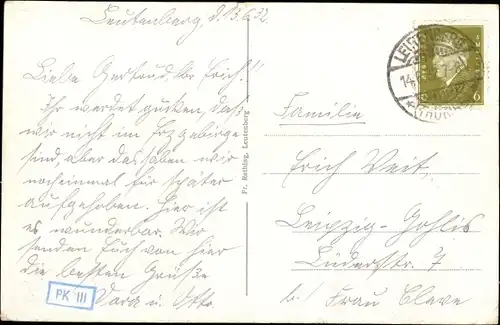 Leutenberg, d. 13.6.32.
Liebe Gertrud, lbr Erich!!
Ihr werdet gucken, daß
wir nicht im Erzgebirge
sind, aber das haben wir
noch einmal für später
aufgehoben. Hier ist
es wunderbar. Wir
senden Euch von hier
die besten Grüße
Dora u. Otto
PK III
Fr. Rothing, Leutenberg
LEUTENBERG
14
(THÜR
6
Familie
Erich Veit,
Leipzig-Gohlis
Lüderstr. 7
b/ Frau Clave